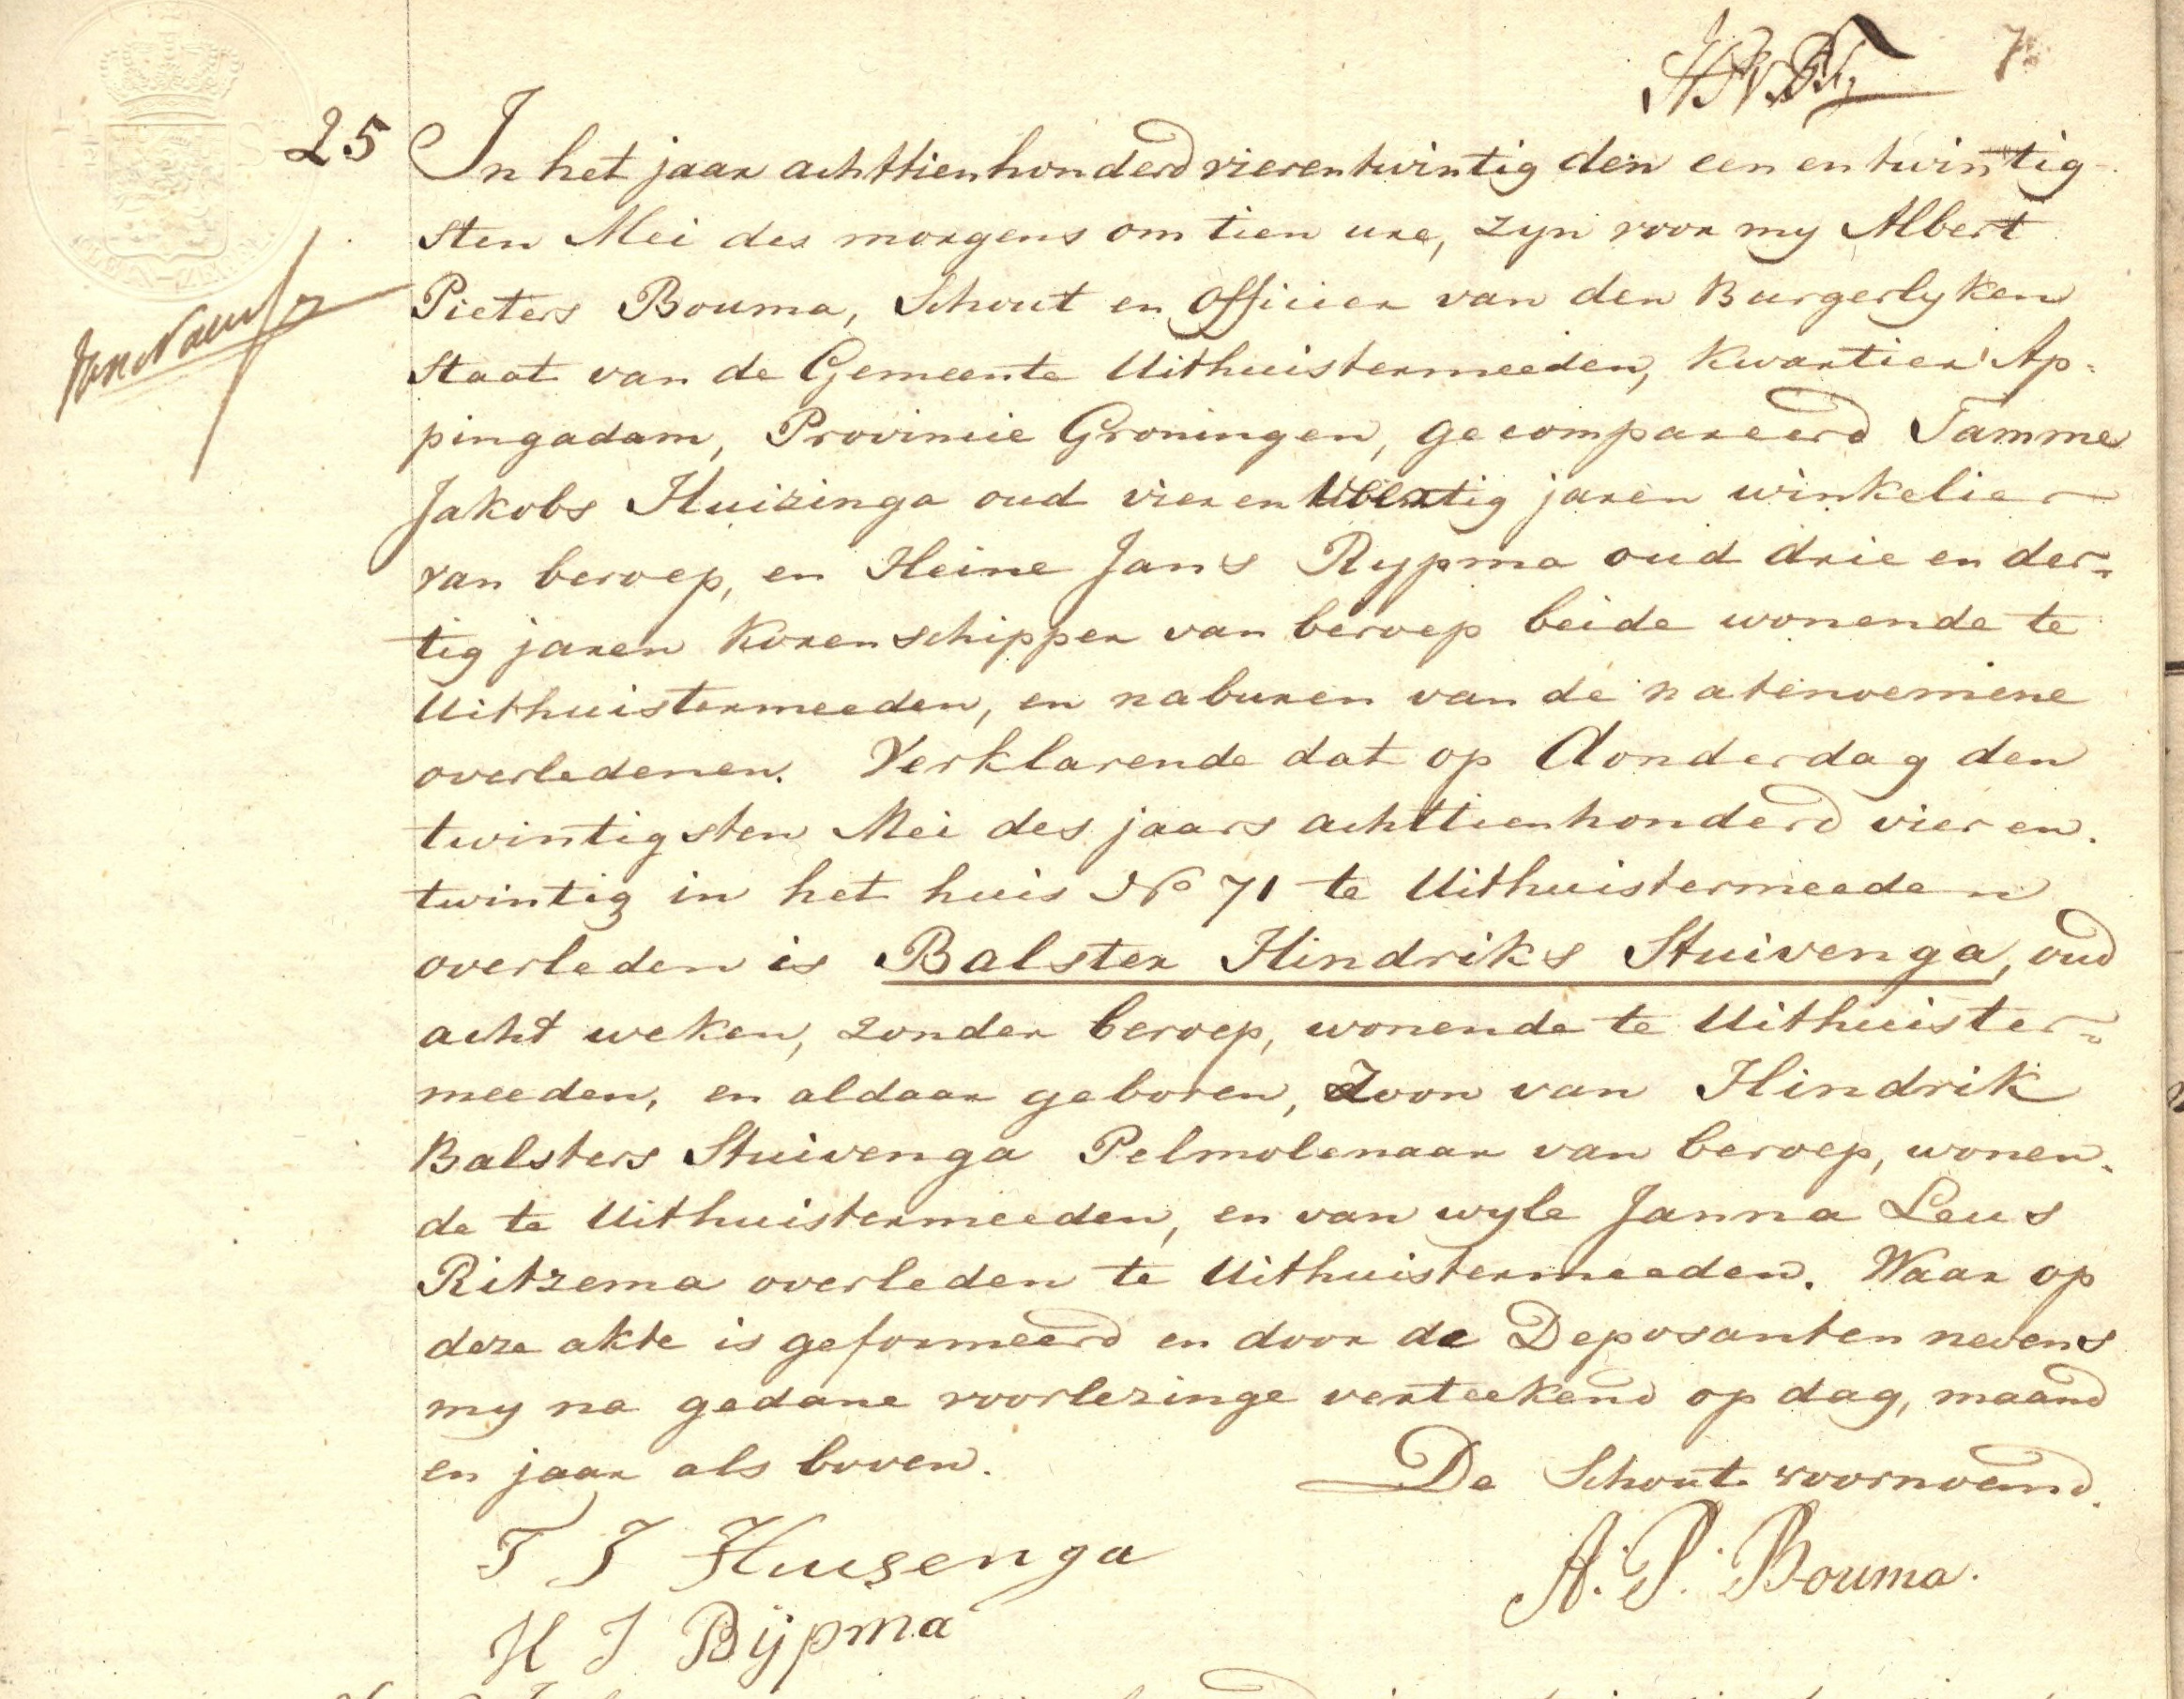 7
25 In het jaar achttienhonderd vierentwintig den een en twintig-
sten Mei des morgens om tien ure, zyn voor my Albert
Pieters Bouma, Schout en Officier van den Burgerlyken
Staat van de Gemeente Uithuistermeeden, Kwartier Ap-
pingadam, Provincie Groningen, gecompareerd Tamme
Jakobs Huizinga oud vier en jaren winkelier
van beroep, en Heine Jans Rypma oud drie en der-
tig jaren Korenschipper van beroep beide wonende te
Uithuistermeeden, en naburen van de natenoemene
overledenen. Verklarende dat op Donderdag den
twintigsten Mei des jaars achttienhonderd vier en
twintig in het huis No 71 te Uithuistermeeden
overleden is Balster Hindriks Stuivenga, oud
acht weken, zonder beroep, wonende te Uithuister-
meeden, en aldaar geboren, Zoon van Hindrik
Balsters Stuivenga Pelmolenaar van beroep, wonen-
de te Uithuistermeeden, en van wyle Janna Leus
Ritzema overleden te Uithuistermeeden. Waar op
deze akte is geformeerd en door de Deposanten nevens
my na gedane voorlezinge verteekend op dag, maand
en jaar als boven. De Schout voornoemd.
T J Husenga
A. P. Bouma.
H J Rijpma